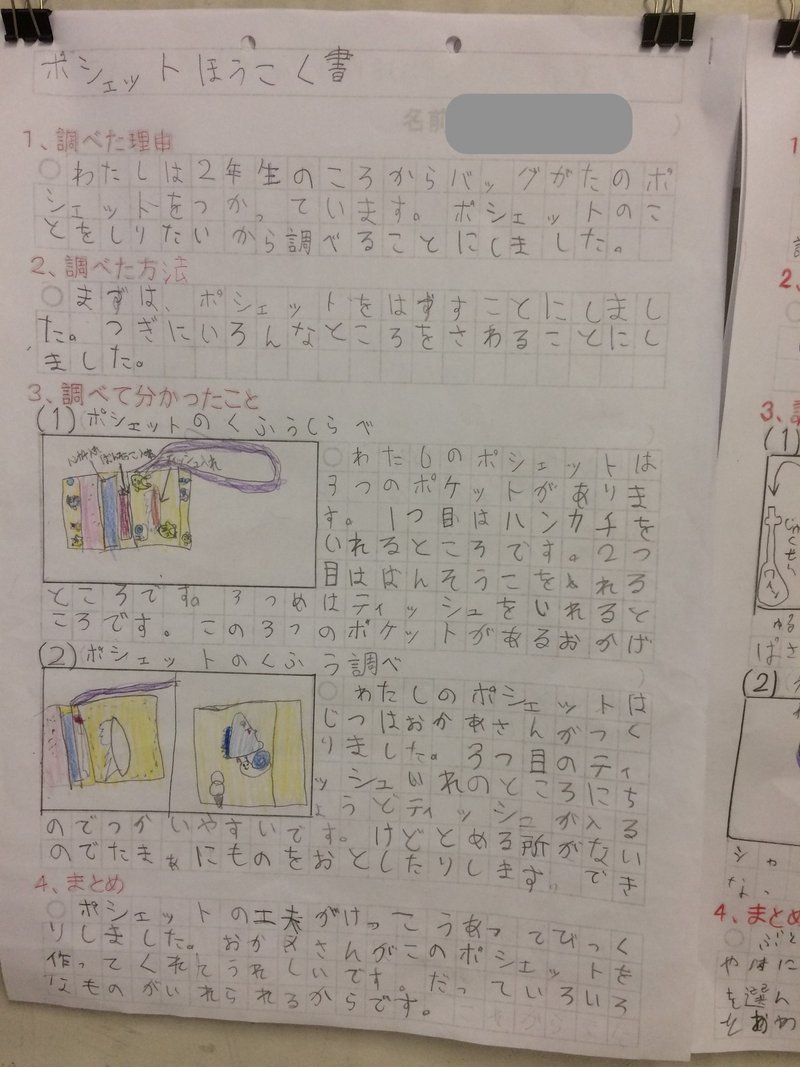 ポシェットほうこく書
名前
1、調べた理由
わたしは2年生のころからバッグがたのポ
シェットをつかっています。ポシェットのこ
とをしりたいから調べることにしました。
2、調べた方法
まずは、ポシェットをはずすことにしまし
た。つぎにいろんなところをさわることにし
ました。
3、調べて分かったこと
(1)ポシェットのくふうしらべ
ティッシュ入れ
わたしのポシェットは
3つのポケットがありま
す。1つ目はハンカチを
いれるところです。2つ
目はばんそうこをいれる
ところです。3つめはティッシュをいれると
ころです。この3つのポケットがあるおかげ
(2)ポシェットのくふう調べ
わたしのポシェットは
じつはおかあさんがつく
りました。3つ目のティ
ッシュいれのところにち
ょうどティッシュが入る
のでつかいやすいです。けどとめる所がない
のでたまぁにものをおとしたりします。
4、まとめ
ポシェットの工夫がけっこうあってびっく
りしました。おかあさんがこのポシェットを
作ってくれてうれしいです。だっていろいろ
なものがいれられるからです。
(1)
2、
3、
(1)
ゆる
ぱさ
(2)
シャ
な、
4、まとめ
やはに
を選ん